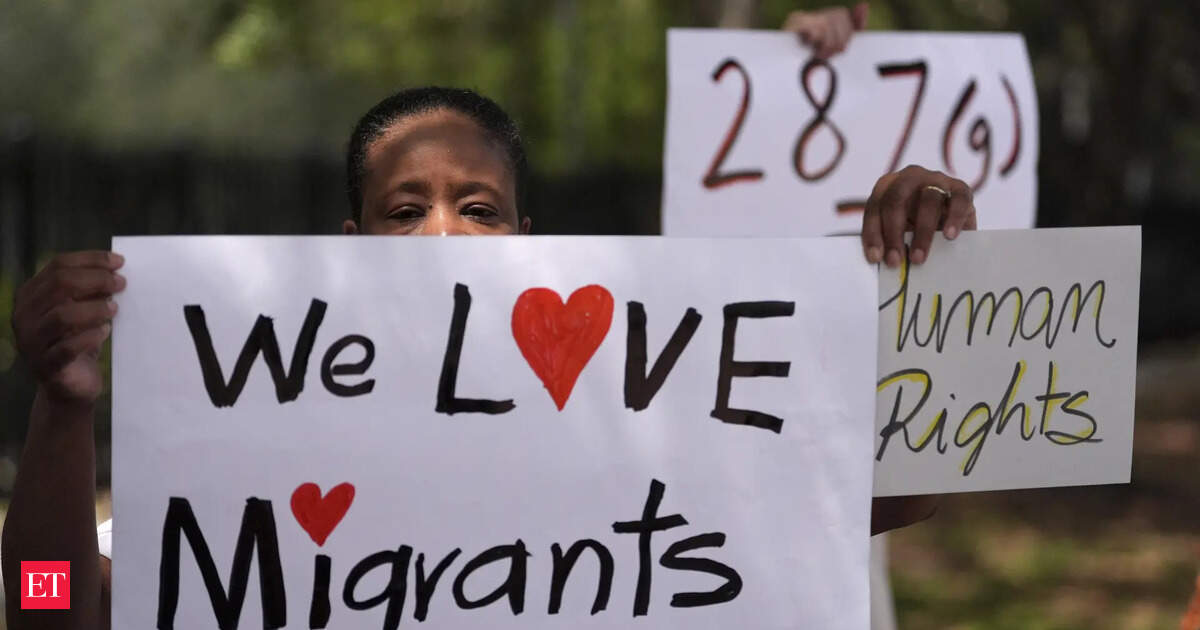 287(g)
We LOVE
Migrants
Human
Rights
ET